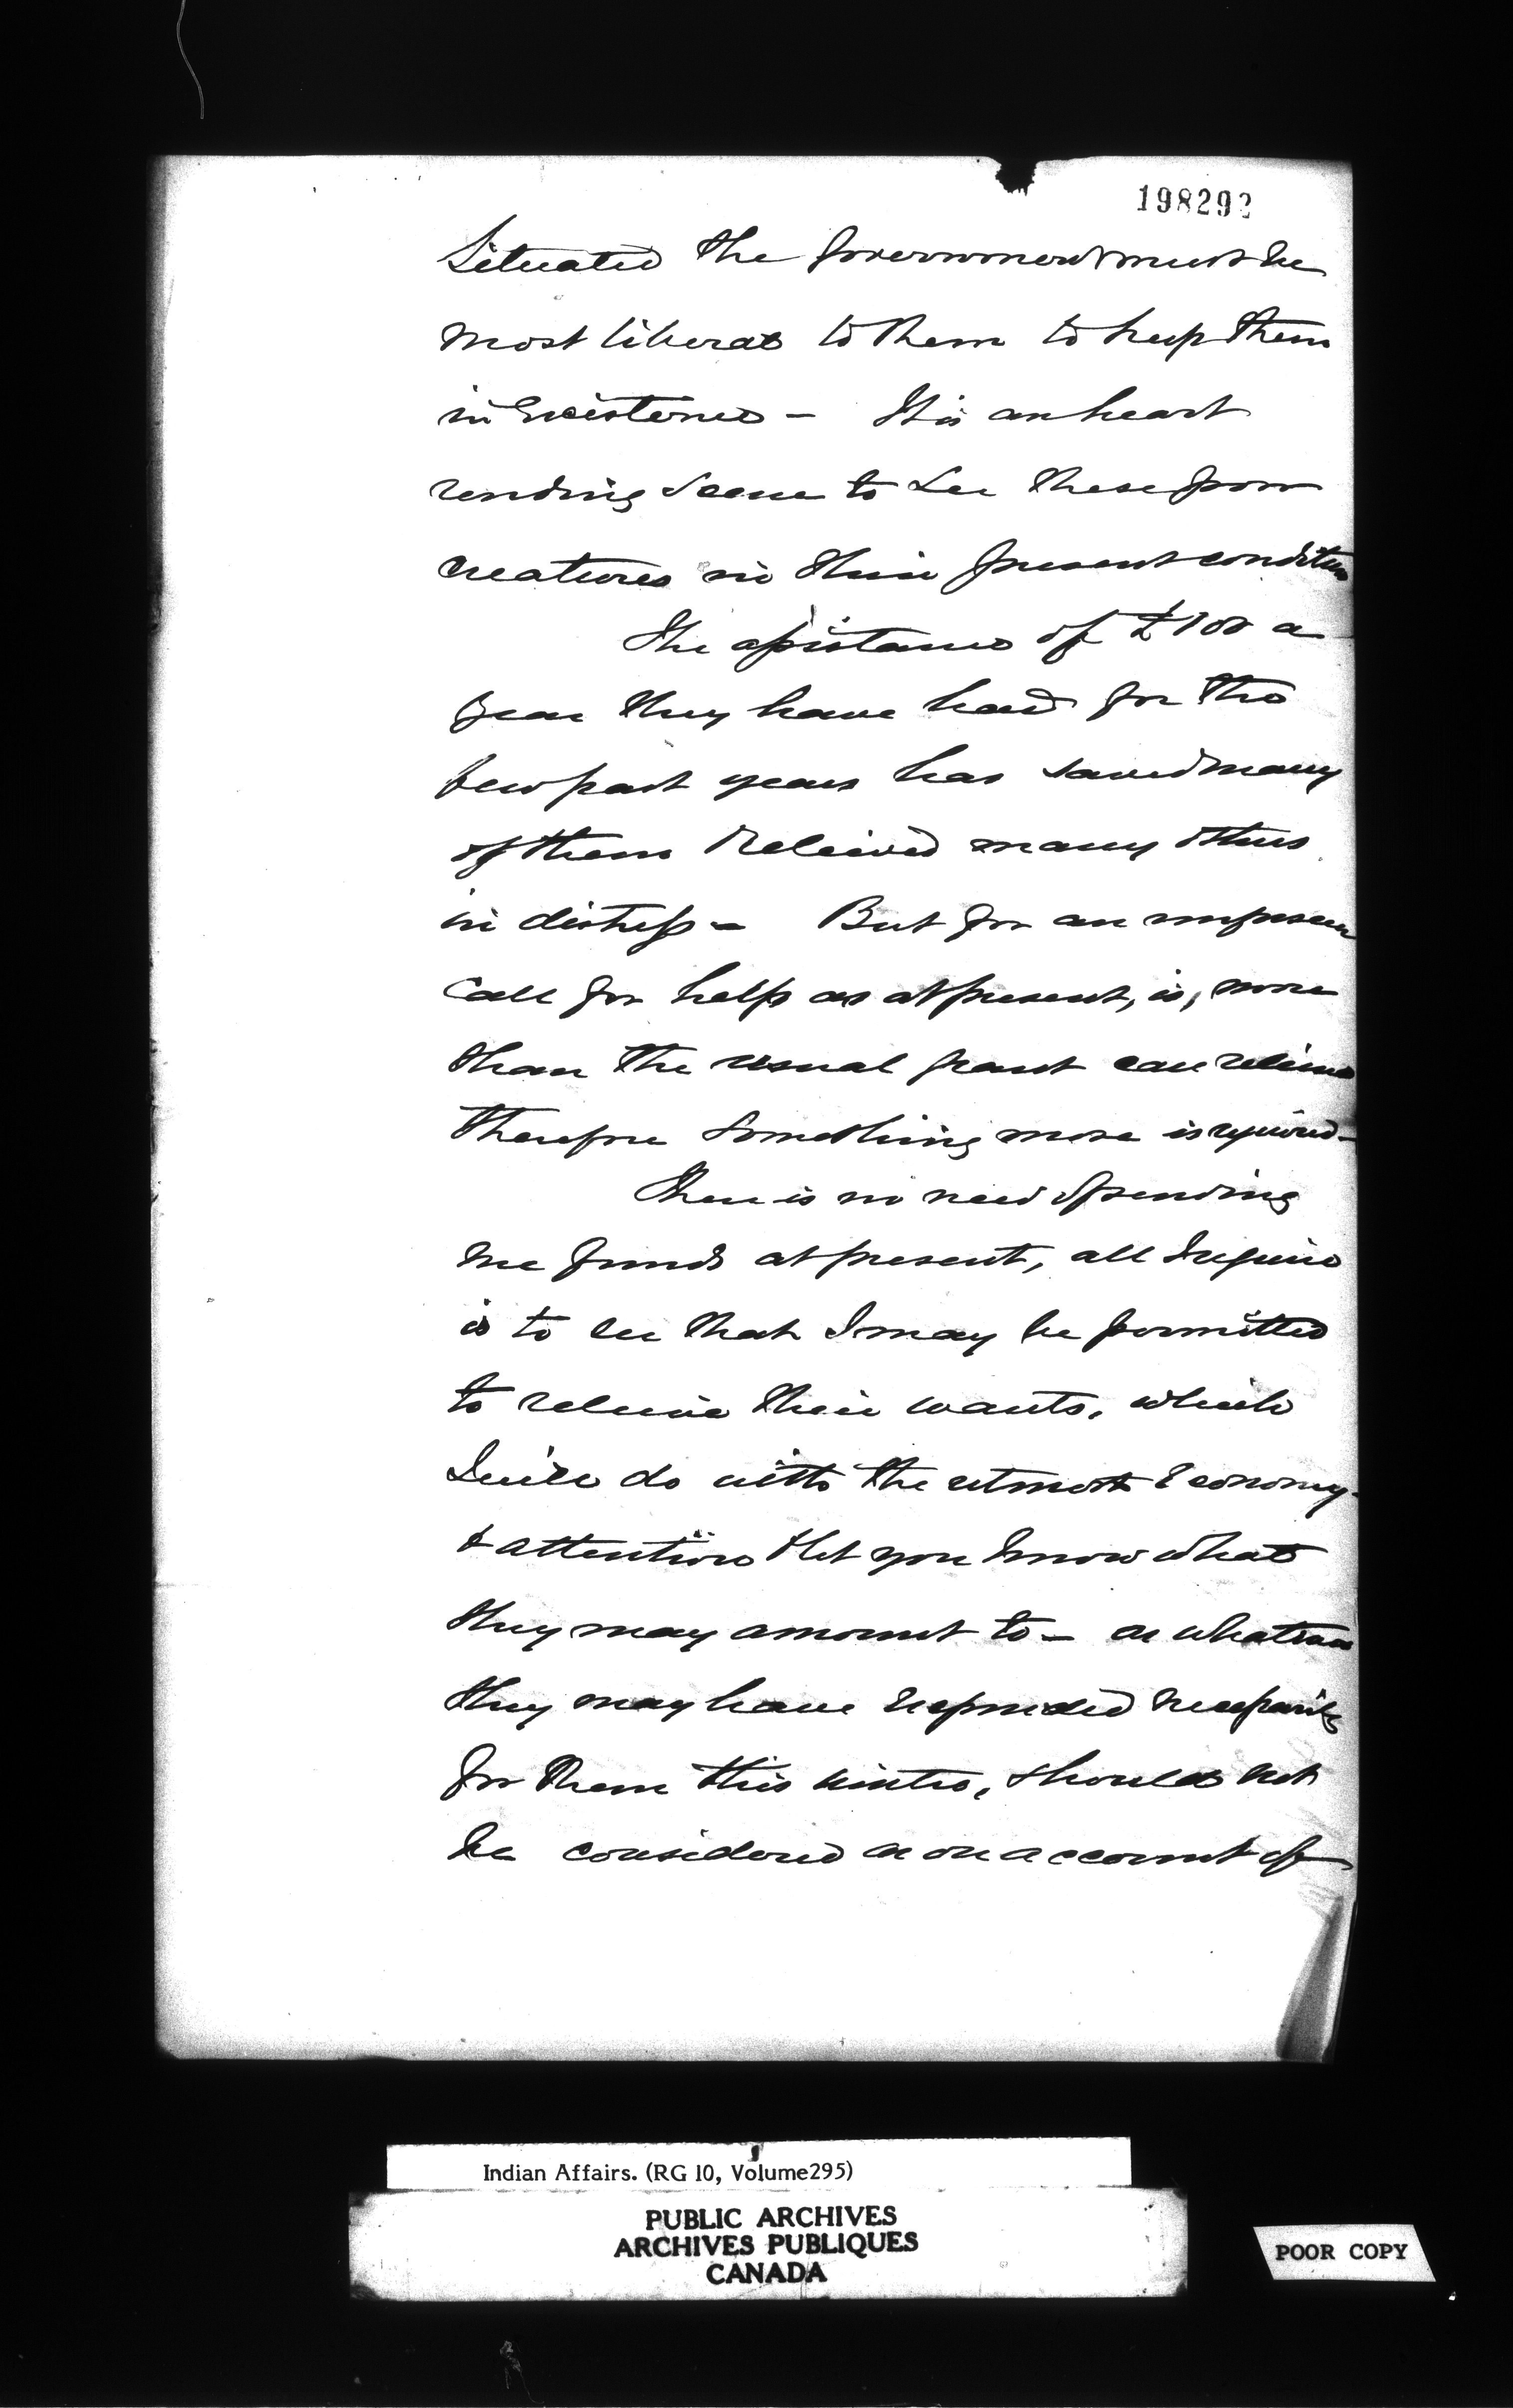 198292
Situated the Government must be
most liberal to them to keep them
in Existence - It is an heart
rending Scene to See these poor
creatures in their present condition
The assistance of £100 a
year they have had for the
few past years has saved many
of them Relieved many others
in distress - But for an
Call for help as at present, is, more
than the usual grant can relieve
therefore Something more is required -
There is no need Sending
me funds at present, all I require
is to see that I may be permitted
to relieve their wants, which
I will do with the utmost Economy
& attention & let you know what
they may amount to - as whatever
they may have Expended necessarily
for them this winter, should not
be considered as on account of
Indian Affairs. (RG 10, Volume 295)
PUBLIC ARCHIVES
ARCHIVES PUBLIQUES
CANADA
POOR COPY